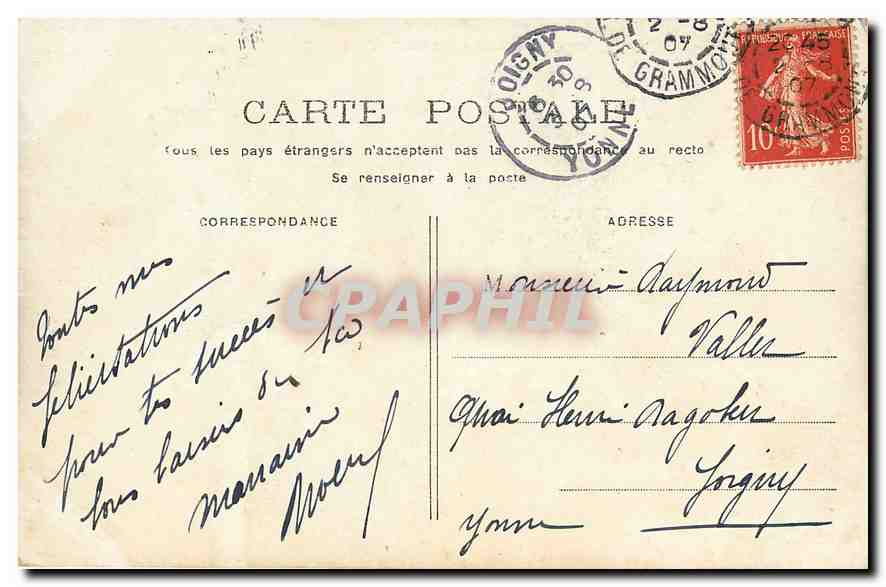 CARTE POSTALE
Tous les pays étrangers n'acceptent pas la correspondance au recto
Se renseigner à la poste
CORRESPONDANCE
ADRESSE
REPUBLIQUE FRANÇAISE
10
POSTES
2 -8
07
DE GRAMMONT
2 45
2 -8
07
GRAMMONT
JOIGNY
8 30
3 -8
07
YONNE
CPAPHIL
Toutes mes
félicitations
pour tes succès et
bons baisers de ta
marraine
Monsieur Raymond
Valles
Quai Henri Ragobert
Joigny
Yonne